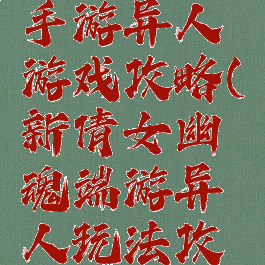 手游异人
游戏攻略(
新倩女幽
魂端游异
人玩法攻